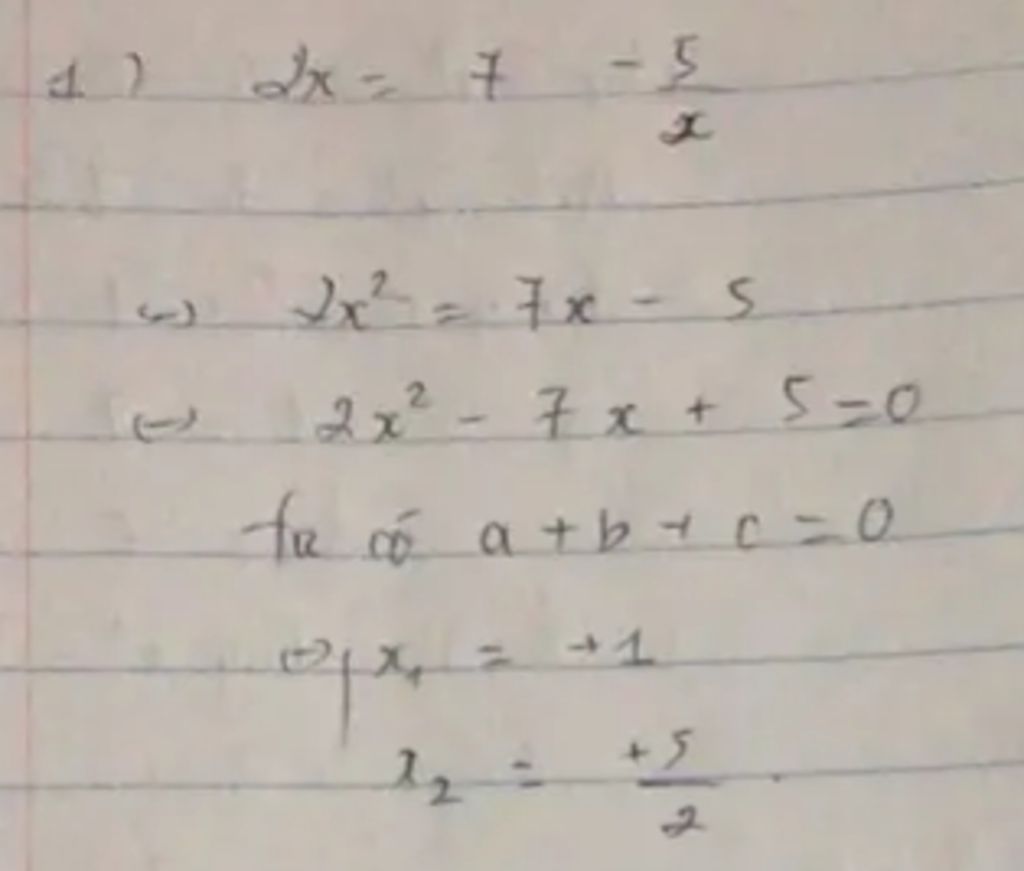 1) 2x = 7 - 5/x
<=> 2x² = 7x - 5
<=> 2x² - 7x + 5 = 0
ta có a + b + c = 0
<=> x₁ = +1
x₂ = +5/2